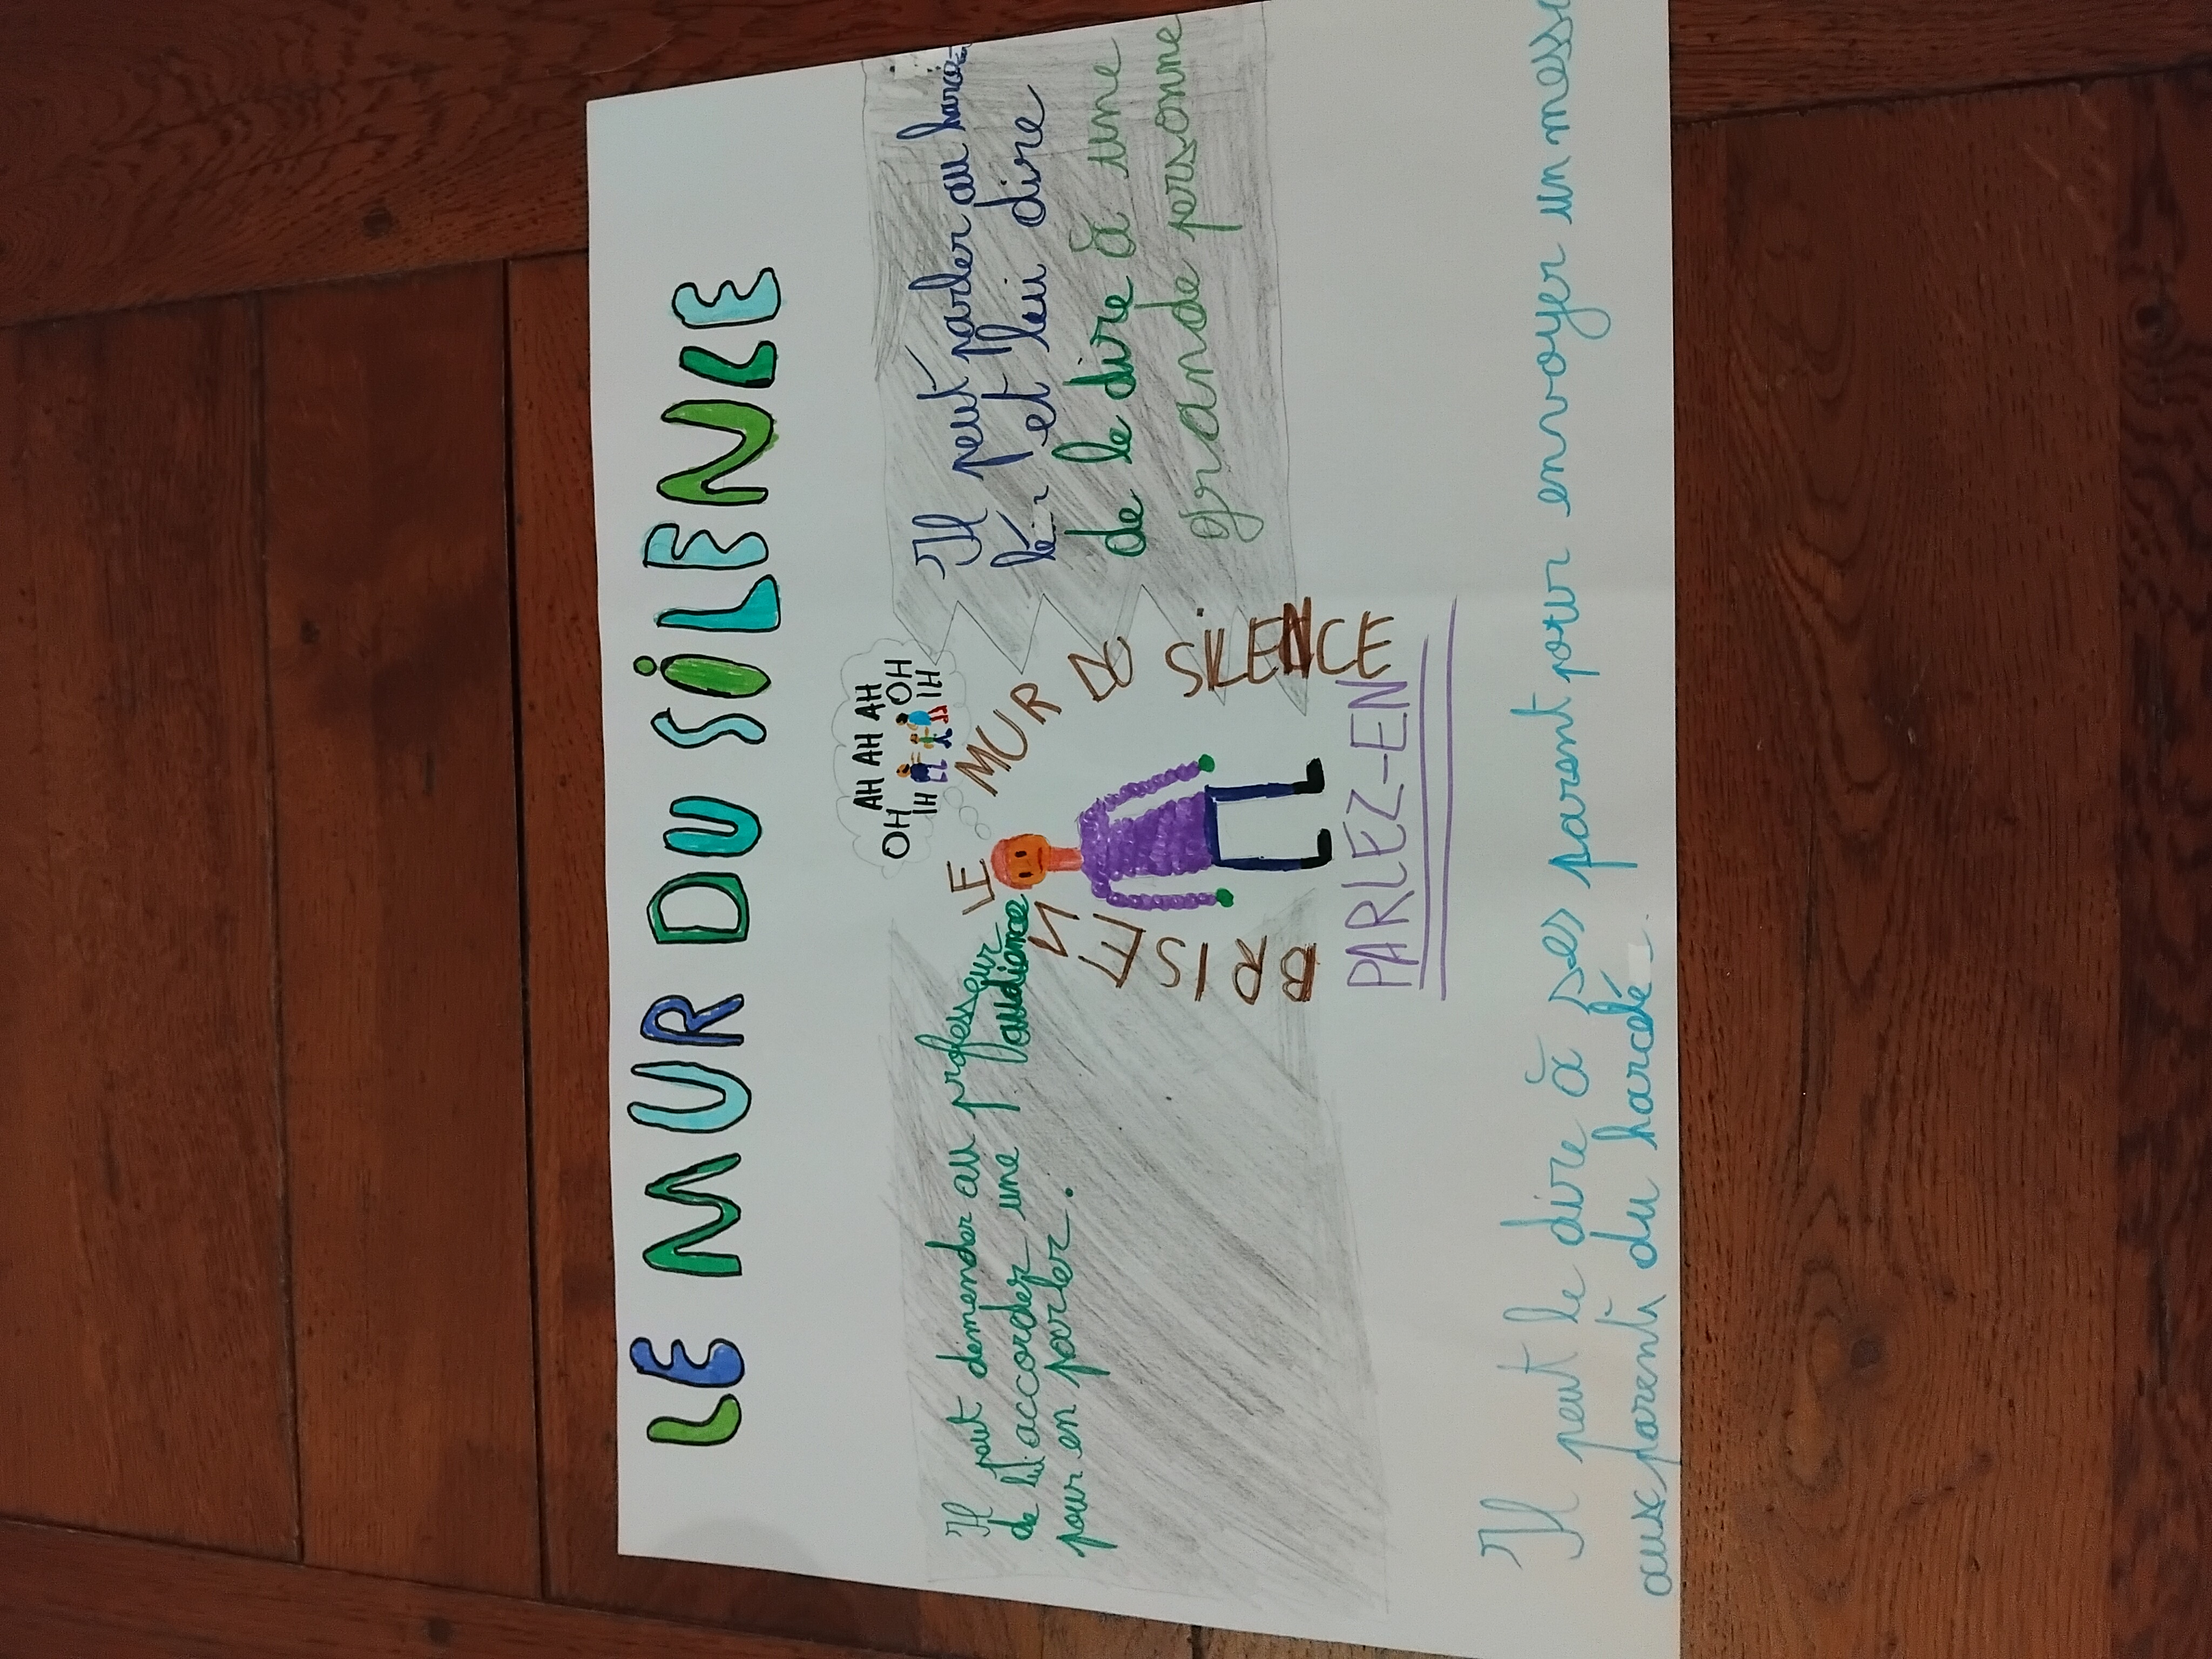 LE MUR DU SILENCE
OH AH AH AH
IH OH
IH
Il peut demender au professeur
de lui accorder une audiance
pour en parler.
BRISEZ LE MUR DU SILENCE
PARLEZ-EN
Il peut parler au harcé-
lé et lui dire
de le dire à une
grande personne
Il peut le dire à ses parent pour envoyer un messa
aux parents du harcelé.